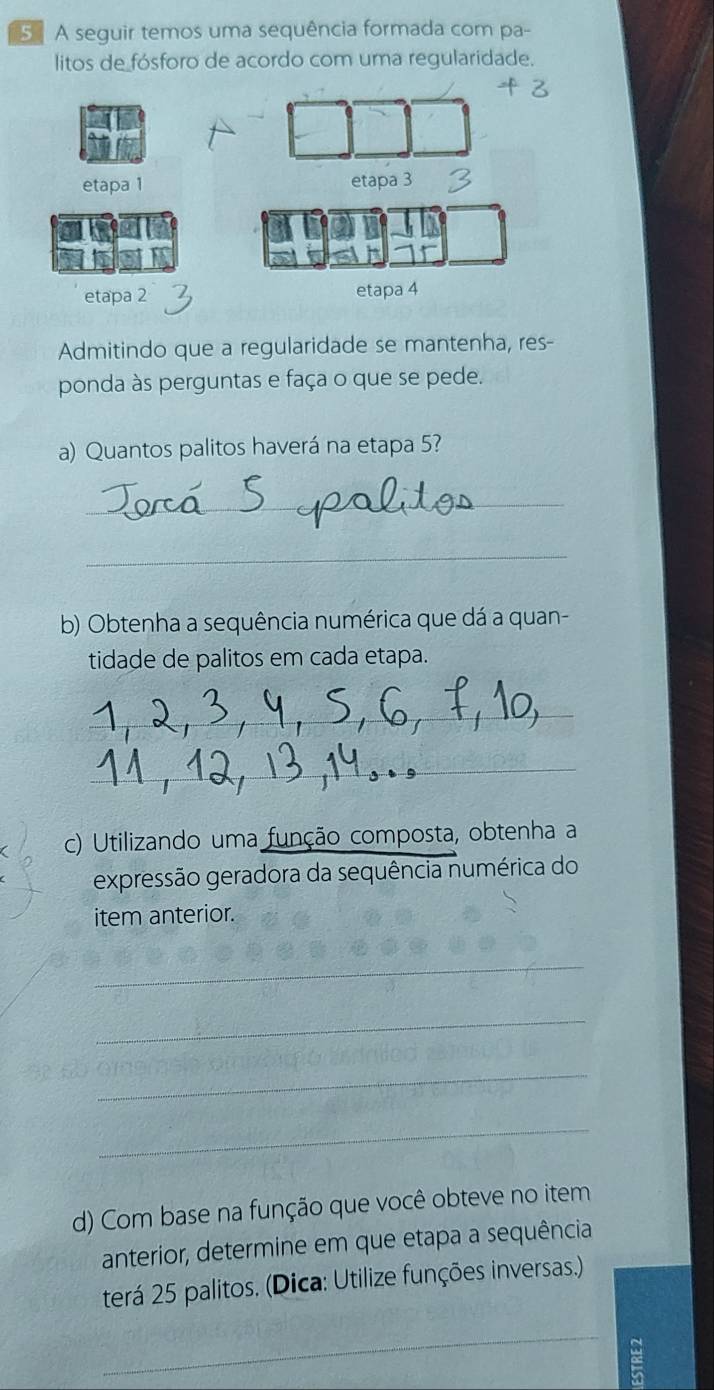 5 A seguir temos uma sequência formada com pa-
litos de fósforo de acordo com uma regularidade.
+ 3
etapa 1
etapa 3 3
etapa 2 3
etapa 4
Admitindo que a regularidade se mantenha, res-
ponda às perguntas e faça o que se pede.
a) Quantos palitos haverá na etapa 5?
Tercá 5 palitos
b) Obtenha a sequência numérica que dá a quan-
tidade de palitos em cada etapa.
1, 2, 3, 4, 5, 6, 7, 10,
11, 12, 13, 14...
c) Utilizando uma função composta, obtenha a
expressão geradora da sequência numérica do
item anterior.
d) Com base na função que você obteve no item
anterior, determine em que etapa a sequência
terá 25 palitos. (Dica: Utilize funções inversas.)
ESTRE 2